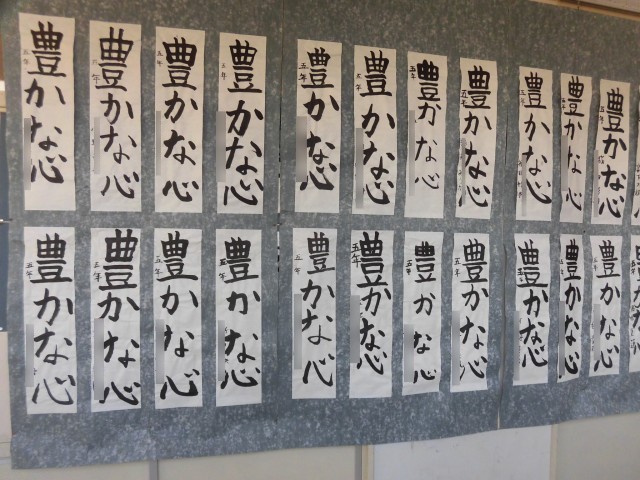 豊かな心
五年
豊かな心
五年
豊かな心
五年
豊かな心
五年
豊かな心
五年
豊かな心
五年
豊かな心
五年
豊かな心
五年
豊かな心
五年
豊かな心
五年
豊かな心
五年
豊かな心
五年
豊かな心
五年
豊かな心
五年
豊かな心
五年
豊かな心
五年
豊かな心
五年
豊かな心
五年
豊かな心
五年
豊かな心
五年
豊かな心
五年
豊かな心
五年